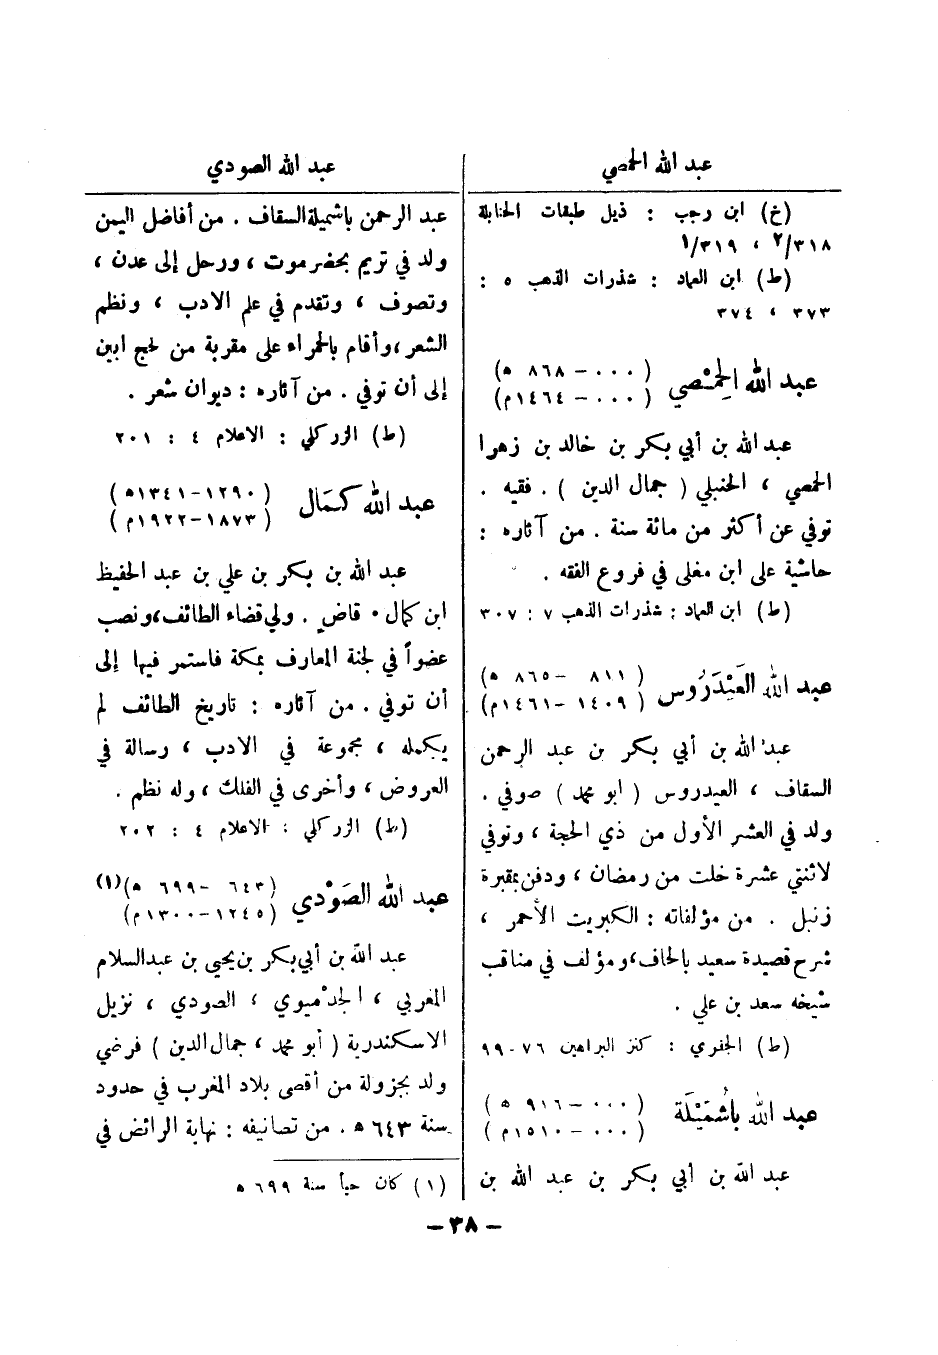 عبد الله الحمصي
(خ) ابن رجب : ذيل طبقات الحنابلة
٢/٣١٨ ، ١/٣١٩
(ط) ابن العماد : شذرات الذهب ٥ :
٣٧٣ ، ٣٧٤
عبد الله الحِمْصي
( ٠٠٠ – ٨٦٨ ه)
( ٠٠٠ – ١٤٦٤م)
عبد الله بن أبي بكر بن خالد بن زهرا
الحمصي ، الحنبلي ( جمال الدين ) . فقيه .
توفي عن أكثر من مائة سنة . من آثاره :
حاشية على ابن مغلى في فروع الفقه .
(ط) ابن العماد : شذرات الذهب ٧ : ٣٠٧
عبد الله العَيْدَرُوس
( ٨١١ – ٨٦٥ ه)
( ١٤٠٩ – ١٤٦١م)
عبد الله بن أبي بكر بن عبد الرحمن
السقاف ، العيدروس ( ابو محمد ) صوفي .
ولد في العشر الأول من ذي الحجة ، وتوفي
لاثنتي عشرة خلت من رمضان ، ودفن بمقبرة
زنبل . من مؤلفاته : الكبريت الأحمر ،
شرح قصيدة سعيد بالحاف، ومؤلف في مناقب
شيخه سعد بن علي .
(ط) الجفري : كنز البراهين ٧٦ - ٩٩
عبد الله باشُمَيْلَة
( ٠٠٠ – ٩١٦ ه )
( ٠٠٠ – ١٥١٠م )
عبد الله بن أبي بكر بن عبد الله بن
عبد الله الصودي
عبد الرحمن باشميلة السقاف . من أفاضل اليمن
ولد في تريم بحضرموت ، ورحل إلى عدن ،
وتصوف ، وتقدم في علم الادب ، ونظم
الشعر، وأقام بالحمراء على مقربة من لحج ابين
إلى أن توفي . من آثاره : ديوان شعر .
(ط) الزركلي : الاعلام ٤ : ٢٠١
عبد الله كمَال
( ١٢٩٠–١٣٤١ه )
( ١٨٧٣–١٩٢٢م )
عبد الله بن بكر بن علي بن عبد الحفيظ
ابن كمال . قاضٍ . ولي قضاء الطائف، ونصب
عضواً في لجنة المعارف بمكة فاستمر فيها إلى
أن توفي . من آثاره : تاريخ الطائف لم
يكمله ، مجموعة في الادب ، رسالة في
العروض ، وأخرى في الفلك ، وله نظم .
(ط) الزركلي : الاعلام ٤ : ٢٠٢
عبد الله الصَوْدي
( ٦٤٣ – ٦٩٩ ه)(١)
( ١٢٤٥–١٣٠٠م)
عبد الله بن أبي بكر بن يحيى بن عبدالسلام
المغربي ، الجدميوي ، الصودي ، نزيل
الاسكندرية ( أبو محمد ، جمال الدين ) فرضي
ولد بجزولة من أقصى بلاد المغرب في حدود
سنة ٦٤٣ ه . من تصانيفه : نهاية الرائض في
(١) كان حياً سنة ٦٩٩ ه
– ٣٨ –